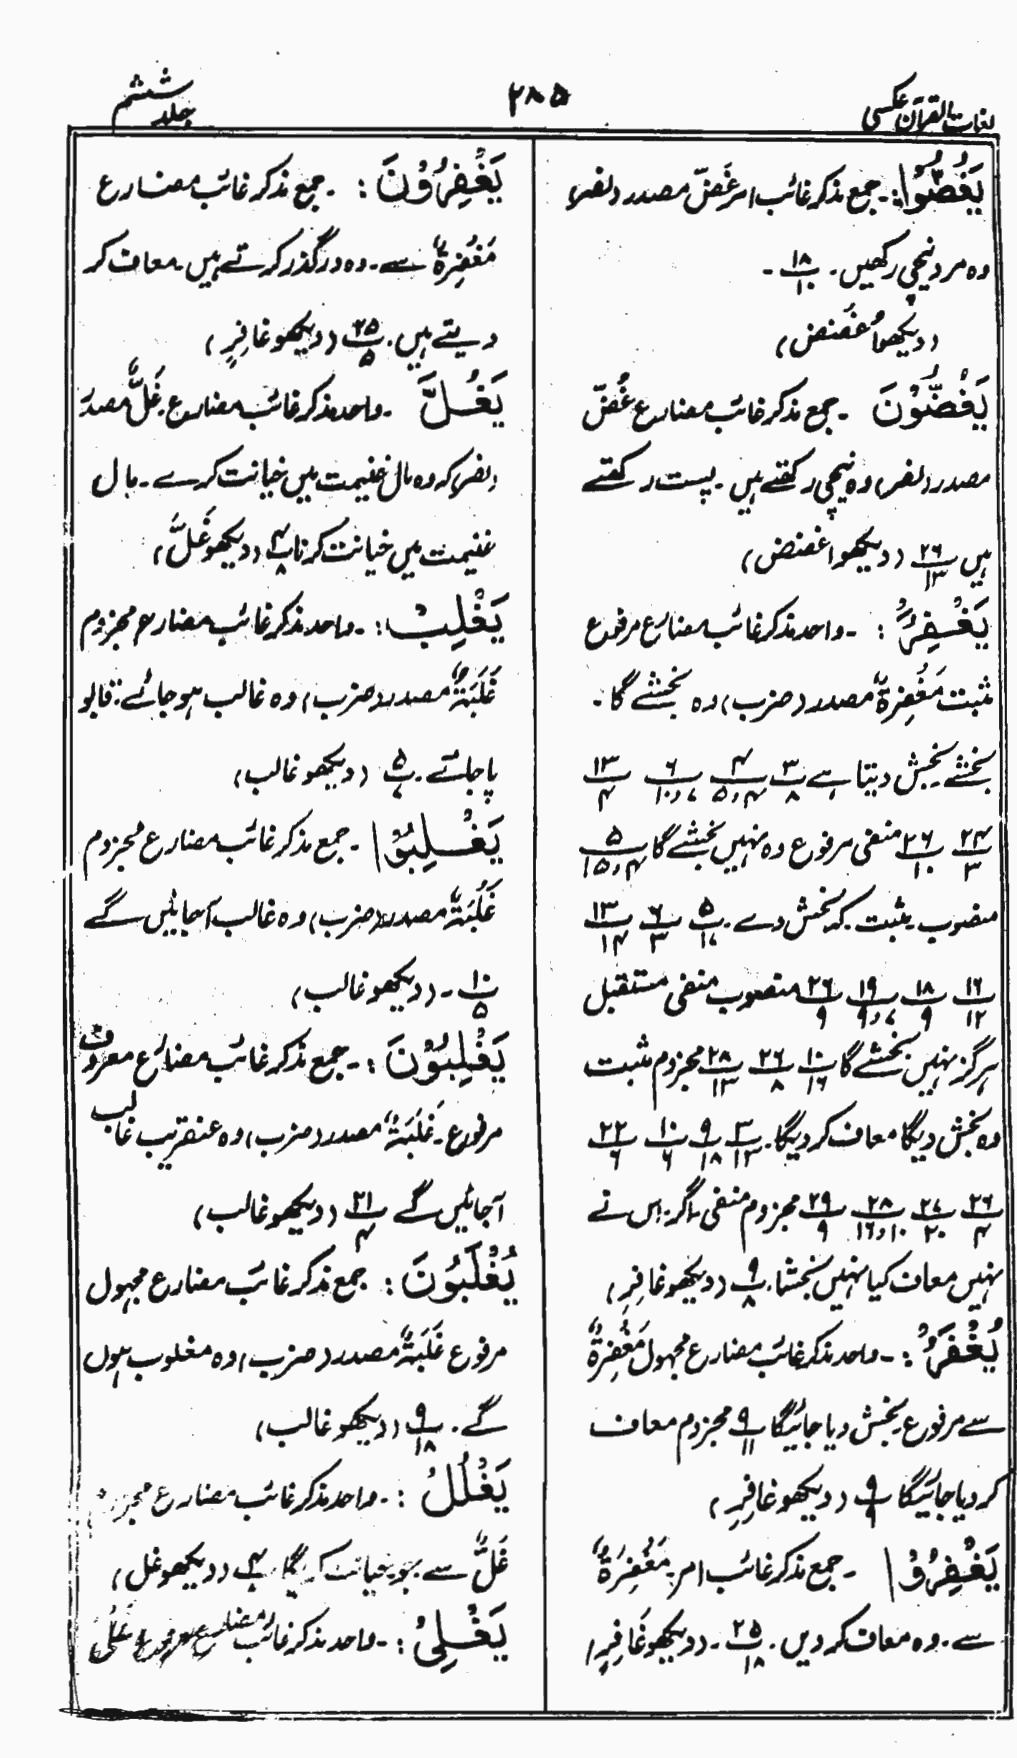 لغات القرآن عکسی
۲۸۵
جلد ششم
یَغُضُّوْا:۔ جمع مذکر غائب امر غَضّ مصدر (نصر)
وہ مرد نیچی رکھیں۔ ۱۸/۱۰ ۔
(دیکھو اُغْضُض)
یَغُضُّوْنَ ۔ جمع مذکر غائب مضارع غُضّ
مصدر (نصر) وہ نیچی رکھتے ہیں۔ پست رکھتے
ہیں ۲۶/۱۳ (دیکھو اغضض)
یَغْفِرُ:۔ واحد مذکر غائب مضارع مرفوع
مثبت مَغْفِرَۃٌ مصدر (ضرب) وہ بخشے گا۔
بخشے بخش دیتا ہے ۳/۸ ۴/۴،۵ ۶/۷،۱۰ ۱۳/۴
۲۴/۳ ۲۶/۱۰ منفی مرفوع وہ نہیں بخشے گا ۵/۴،۱۵
منصوب مثبت کہ بخش دے۔ ۵/۱۷ ۶/۳ ۱۳/۱۴
۱۶/۱۲ ۱۸/۹ ۱۹/۷،۹ ۲۶/۹ منصوب منفی مستقبل
ہرگز نہیں بخشے گا ۱۰/۱۶ ۲۶/۸ ۲۸/۱۳ مجزوم مثبت
وہ بخش دیگا معاف کردیگا۔ ۳/۱۲ ۹/۱۸ ۱۰/۶ ۲۲/۶
۲۶/۴ ۲۷/۲۰ ۲۸/۱۰،۱۶ ۲۹/۹ مجزوم منفی۔ اگر اس نے
نہیں معاف کیا نہیں بخشا۔ ۹/۸ (دیکھو غافِرِ)
یُغْفَرُ:۔ واحد مذکر غائب مضارع مجہول مَغْفِرَۃٌ
سے مرفوع بخش دیا جائیگا ۹/۱۱ مجزوم معاف
کر دیا جائیگا ۹/۹ (دیکھو غافِرِ)
یَغْفِرُوْا ۔ جمع مذکر غائب امر مَغْفِرَۃٌ
سے۔ وہ معاف کر دیں۔ ۲۵/۱۸ ۔ (دیکھو غَافِرِ)
یَغْفِرُوْنَ:۔ جمع مذکر غائب مضارع
مَغْفِرَۃٌ سے۔ وہ درگذر کرتے ہیں۔ معاف کر
دیتے ہیں۔ ۲۵/۵ (دیکھو غافِرِ)
یَغُلَّ ۔ واحد مذکر غائب مضارع غَلٌّ مصدر
(نصر) کہ وہ مال غنیمت میں خیانت کرے۔ مال
غنیمت میں خیانت کرنا ۴/۸ (دیکھو غَلَّ)
یَغْلِبْ:۔ واحد مذکر غائب مضارع مجزوم
غَلَبَۃٌ مصدر (ضرب) وہ غالب ہو جائے۔ قابو
پا جائے۔ ۵/۷ (دیکھو غالب)
یَغْلِبُوْا ۔ جمع مذکر غائب مضارع مجزوم
غَلَبَۃٌ مصدر (ضرب) وہ غالب آجائیں گے
۱۰/۵ ۔ (دیکھو غالب)
یَغْلِبُوْنَ:۔ جمع مذکر غائب مضارع معروف
مرفوع۔ غَلَبَۃٌ مصدر (ضرب) وہ عنقریب غالب
آجائیں گے ۲۱/۴ (دیکھو غالب)
یُغْلَبُوْنَ: جمع مذکر غائب مضارع مجہول
مرفوع غَلَبَۃٌ مصدر (ضرب) وہ مغلوب ہوں
گے۔ ۹/۱۸ (دیکھو غالب)
یَغْلُلْ:۔ واحد مذکر غائب مضارع مجزوم
غَلٌّ سے جو خیانت کریگا ۴/۸ (دیکھو غل)
یَغْلِیْ:۔ واحد مذکر غائب مضارع